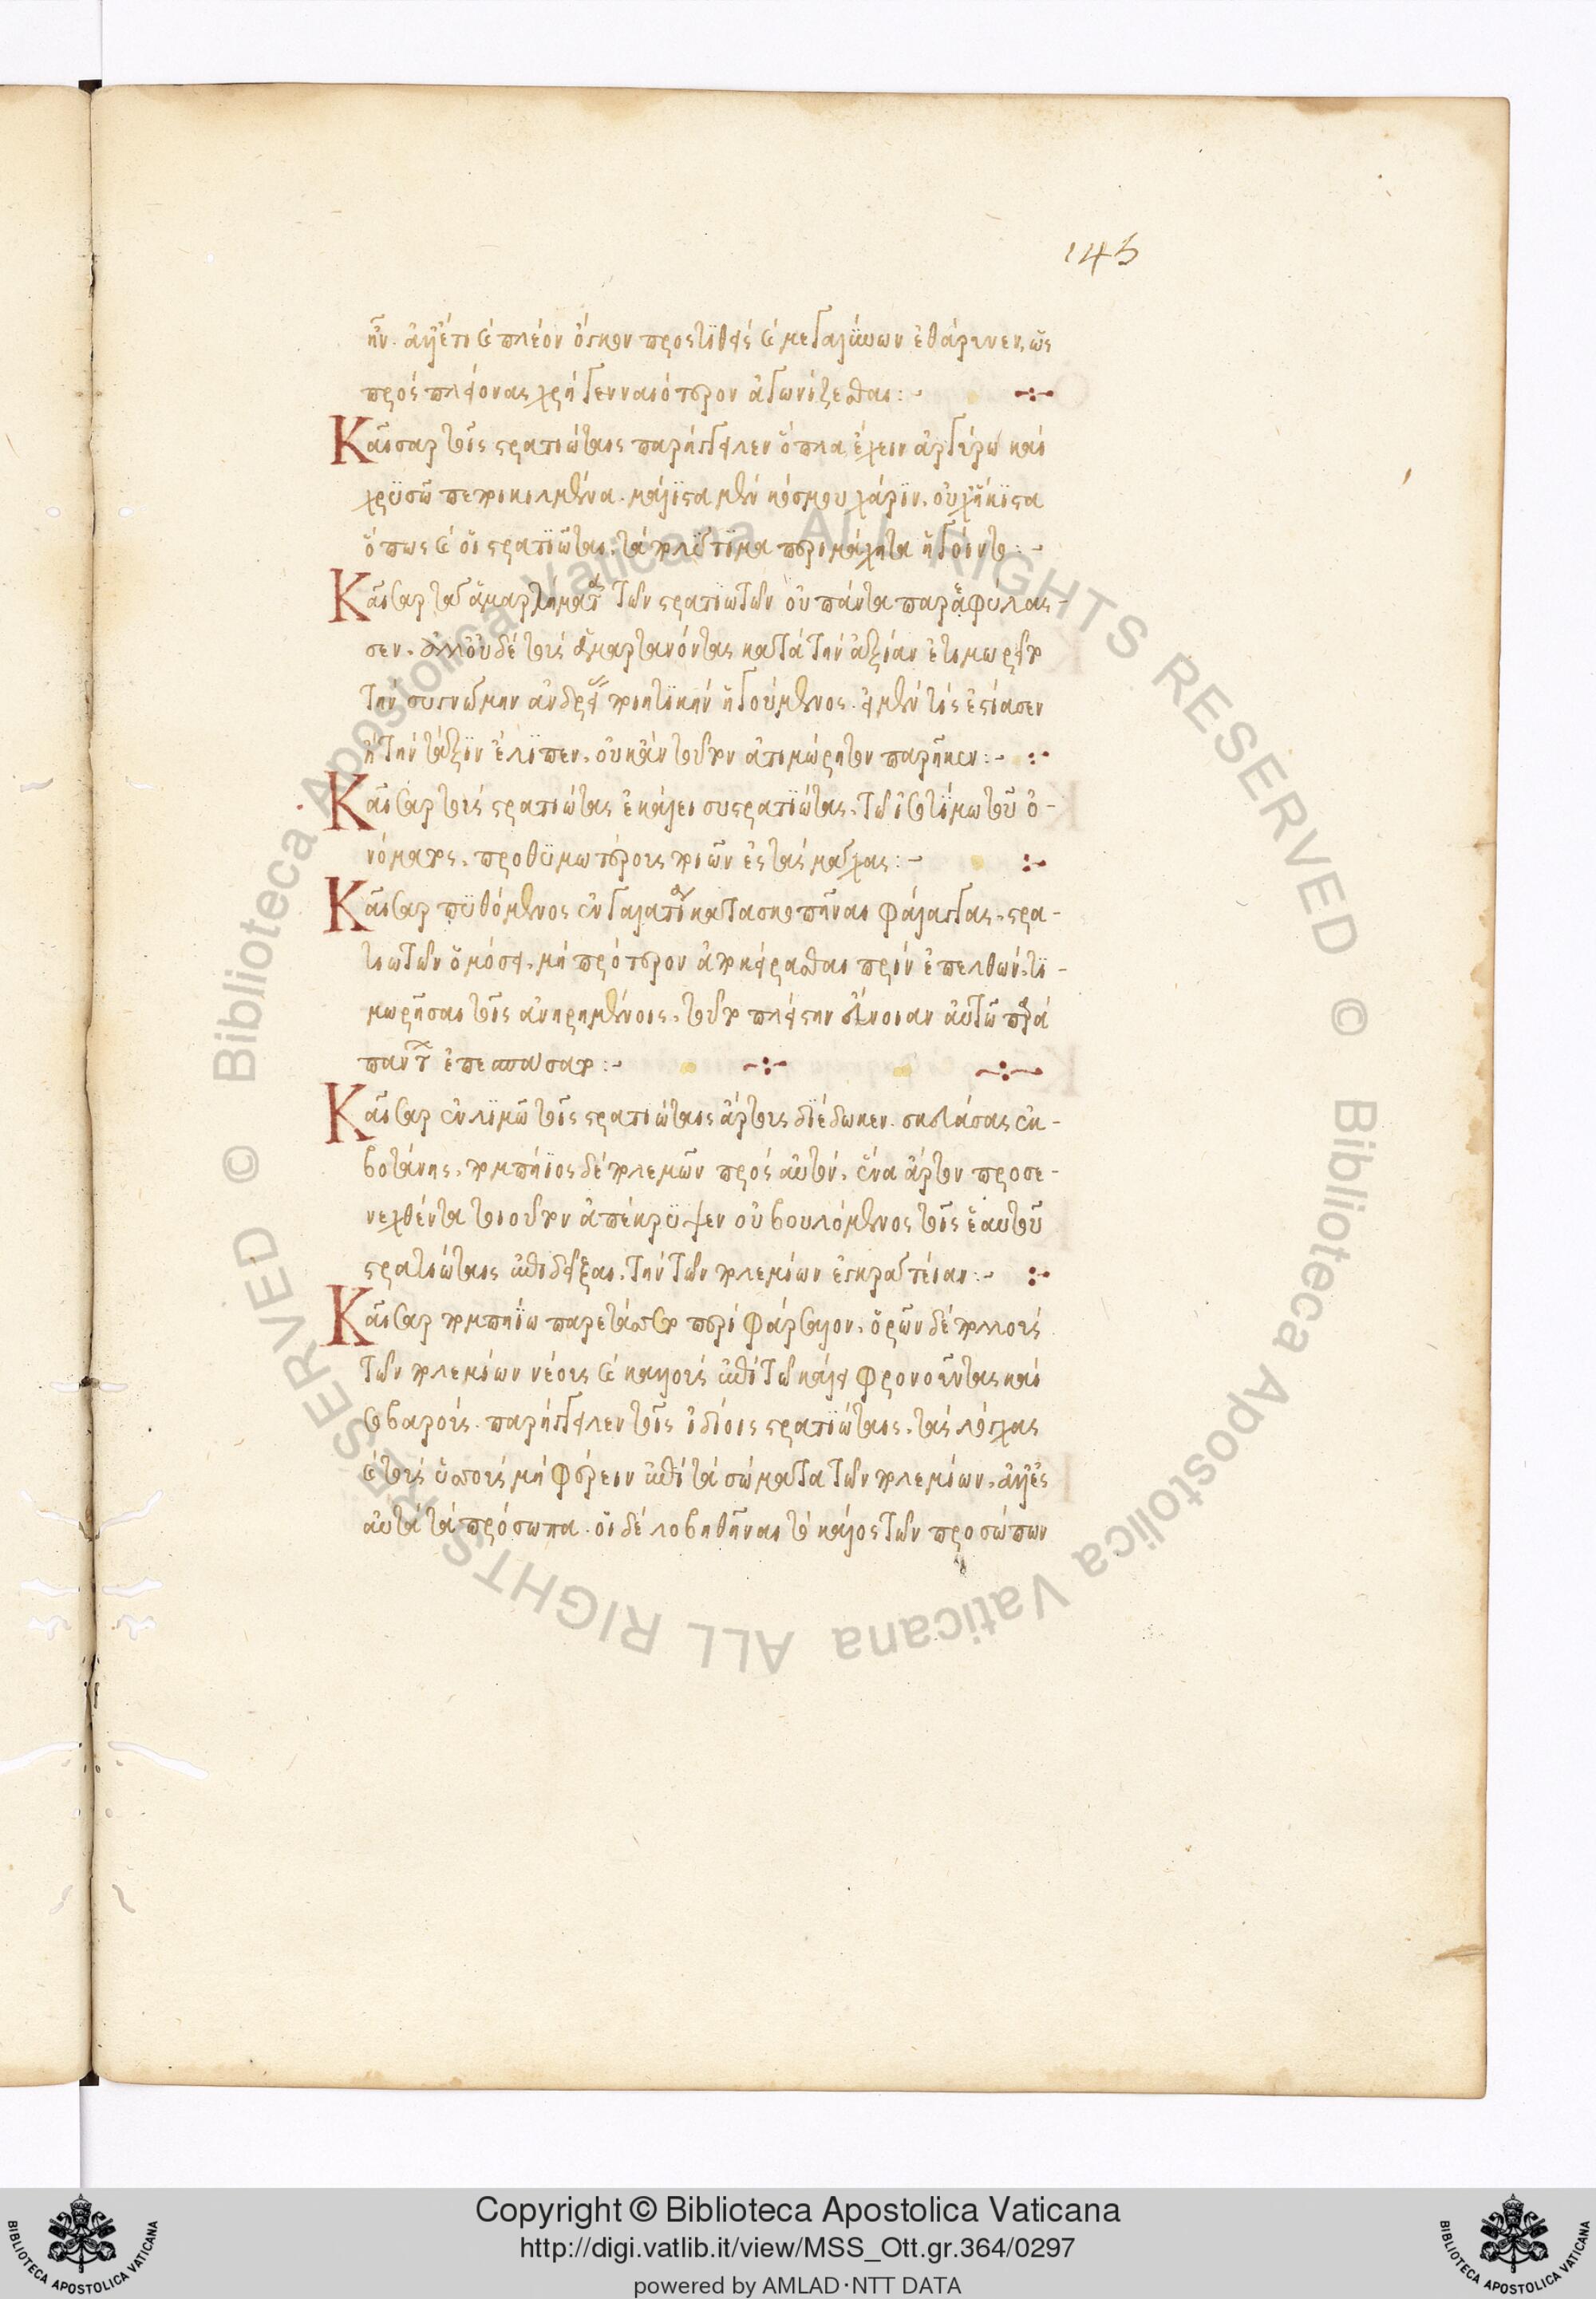 145
ἦν. ἀλλ' ἔτι καὶ πλέον ὄγκον προστιθεὶς καὶ μεγαλύνων ἐθάρρυνεν, ὡς
πρὸς πλείονας χρὴ γενναιότερον ἀγωνίζεσθαι:-
Καῖσαρ τοῖς στρατιώταις παρήγγειλεν ὅπλα ἔχειν ἀργύρω καὶ
χρυσῶ πεποικιλμένα. μάλιστα μὲν κόσμου χάριν. οὐχ ἥκιστα
ὅπως καὶ οἱ στρατιῶται. τὰ πολύτιμα περιμάχητα ἡγοῖντο:-
Καῖσαρ τὰ ἁμαρτήματα τῶν στρατιωτῶν οὐ πάντα παρεφύλασ-
σεν. ἀλλ' οὐδὲ τοὺς ἁμαρτανόντας κατὰ τὴν ἀξίαν ἐτιμωρεῖτο
τὴν συγνώμην ἀνδρείας ποιητικὴν ἡγούμενος. εἰ μέν τις ἐστίασεν
ἢ τὴν τάξιν ἔλιπεν. οὐκ ἂν τοῦτον ἀτιμώρητον παρῆκεν:-
Καῖσαρ τοὺς στρατιώτας ἐκάλει συστρατιώτας. τῶ ἰσοτίμω τοῦ ὀ-
νόματος. προθυμωτέρους ποιῶν ἐς τὰς μάχας:-
Καῖσαρ πυθόμενος ἐν Γαλατίᾳ κατασκοπῆναι φάλαγγας. στρα-
τιωτῶν ὤμοσε. μὴ πρότερον ἀποκείρασθαι πρὶν ἐπελθὼν. τι-
μωρῆσαι τοῖς ἀνηρημένοις. τοῦτο πλείστην εὔνοιαν αὐτῶ παρὰ
πάντων ἐπεσπάσατο:-
Καῖσαρ ἐν λιμῶ τοῖς στρατιώταις ἄρτους διέδωκεν. σκευάσας ἐκ-
βοτάνης. Πομπήϊος δὲ πολεμῶν πρὸς αὐτόν. ἕνα ἄρτον προσε-
νεχθέντα τοιοῦτον ἀπέκρυψεν οὐ βουλόμενος τοῖς ἑαυτοῦ
στρατιώταις ἐπιδεῖξαι. τὴν τῶν πολεμίων ἐγκράτειαν:-
Καῖσαρ Πομπηίω παρετάσσετο περὶ Φάρσαλον. ὁρῶν δὲ πολλοὺς
τῶν πολεμίων νέους καὶ καλοὺς ἐπὶ τῶ κάλλει φρονοῦντας καὶ
σοβαροὺς. παρήγγειλεν τοῖς ἰδίοις στρατιώταις. τὰς λόγχας
καὶ τοὺς ὑσσοὺς μὴ φέρειν ἐπὶ τὰ σώματα τῶν πολεμίων. ἀλλ' ἐς
αὐτὰ τὰ πρόσωπα. οἱ δὲ λοβηθῆναι τὸ κάλλος τῶν προσώπων
Copyright © Biblioteca Apostolica Vaticana
http://digi.vatlib.it/view/MSS_Ott.gr.364/0297
powered by AMLAD·NTT DATA